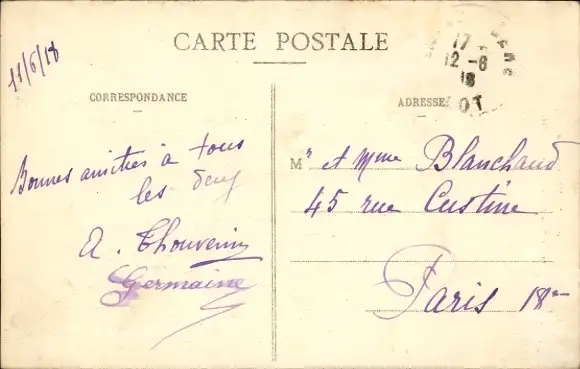 11/6/18
CARTE POSTALE
17
12 -6
18
LOT
CORRESPONDANCE
ADRESSE
Bonnes amitiés à tous
les deux
A. Thouvenin
Germaine
Mr et Mme Blanchaud
45 rue Custine
Paris 18e